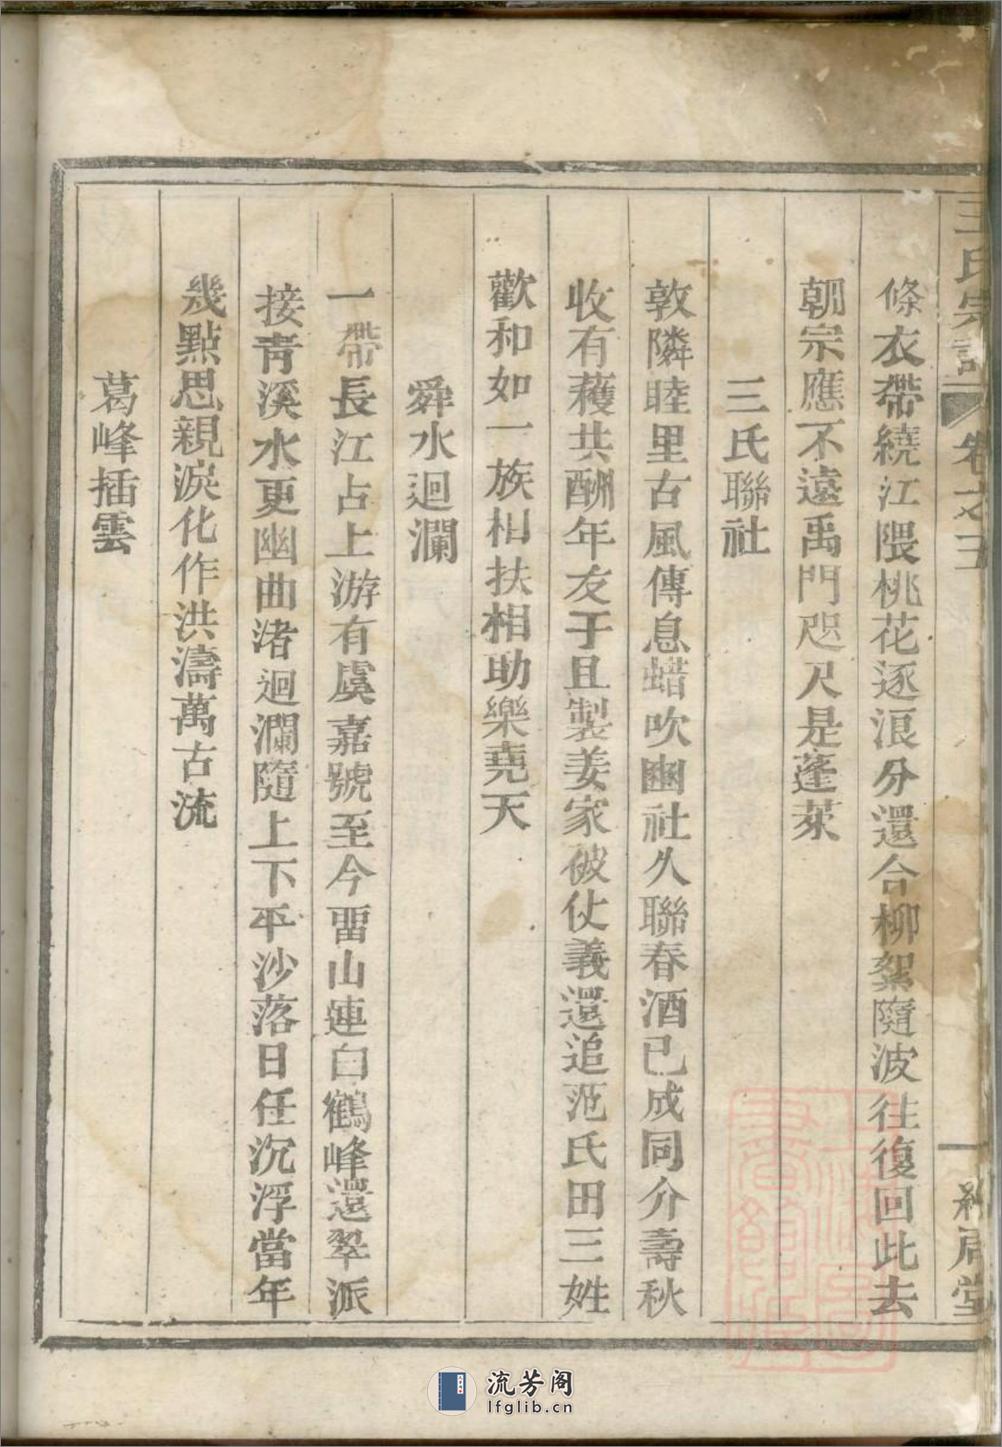 王氏宗譜 卷之三 一
條衣帶繞江隈桃花逐浪分還合柳絮隨波往復回此去
朝宗應不遠禹門咫尺是蓬萊
三氏聯社
敦隣睦里古風傳息蜡吹豳社久聯春酒已成同介壽秋
收有穫共酬年友于且製姜家被仗義還追范氏田三姓
歡和如一族相扶相助樂堯天
舜水迴瀾
一帶長江占上游有虞嘉號至今畱山連白鶴峰還翠派
接青溪水更幽曲渚迴瀾隨上下平沙落日任沉浮當年
幾點思親淚化作洪濤萬古流
葛峰插雲
流芳阁
lfglib.cn